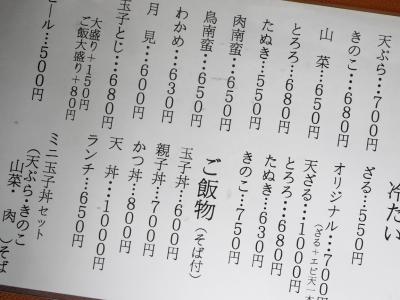 天ぷら…700円
きのこ…680円
山菜…650円
とろろ…680円
たぬき…550円
肉南蛮…650円
鳥南蛮…650円
わかめ…630円
月見…600円
玉子とじ…680円
大盛り+150円
ご飯大盛り+80円
ール…500円
冷たい
ざる…550
オリジナル…700円
(ざる+エビ天一本
天ざる…1000円
とろろ…680円
たぬき…630円
きのこ…750円
ご飯物(そば付)
玉子丼…600円
親子丼…700円
かつ丼…800円
天丼…1000円
ランチ…650円
ミニ玉子丼セット
(天ぷら・きのこ
山菜・肉)そば